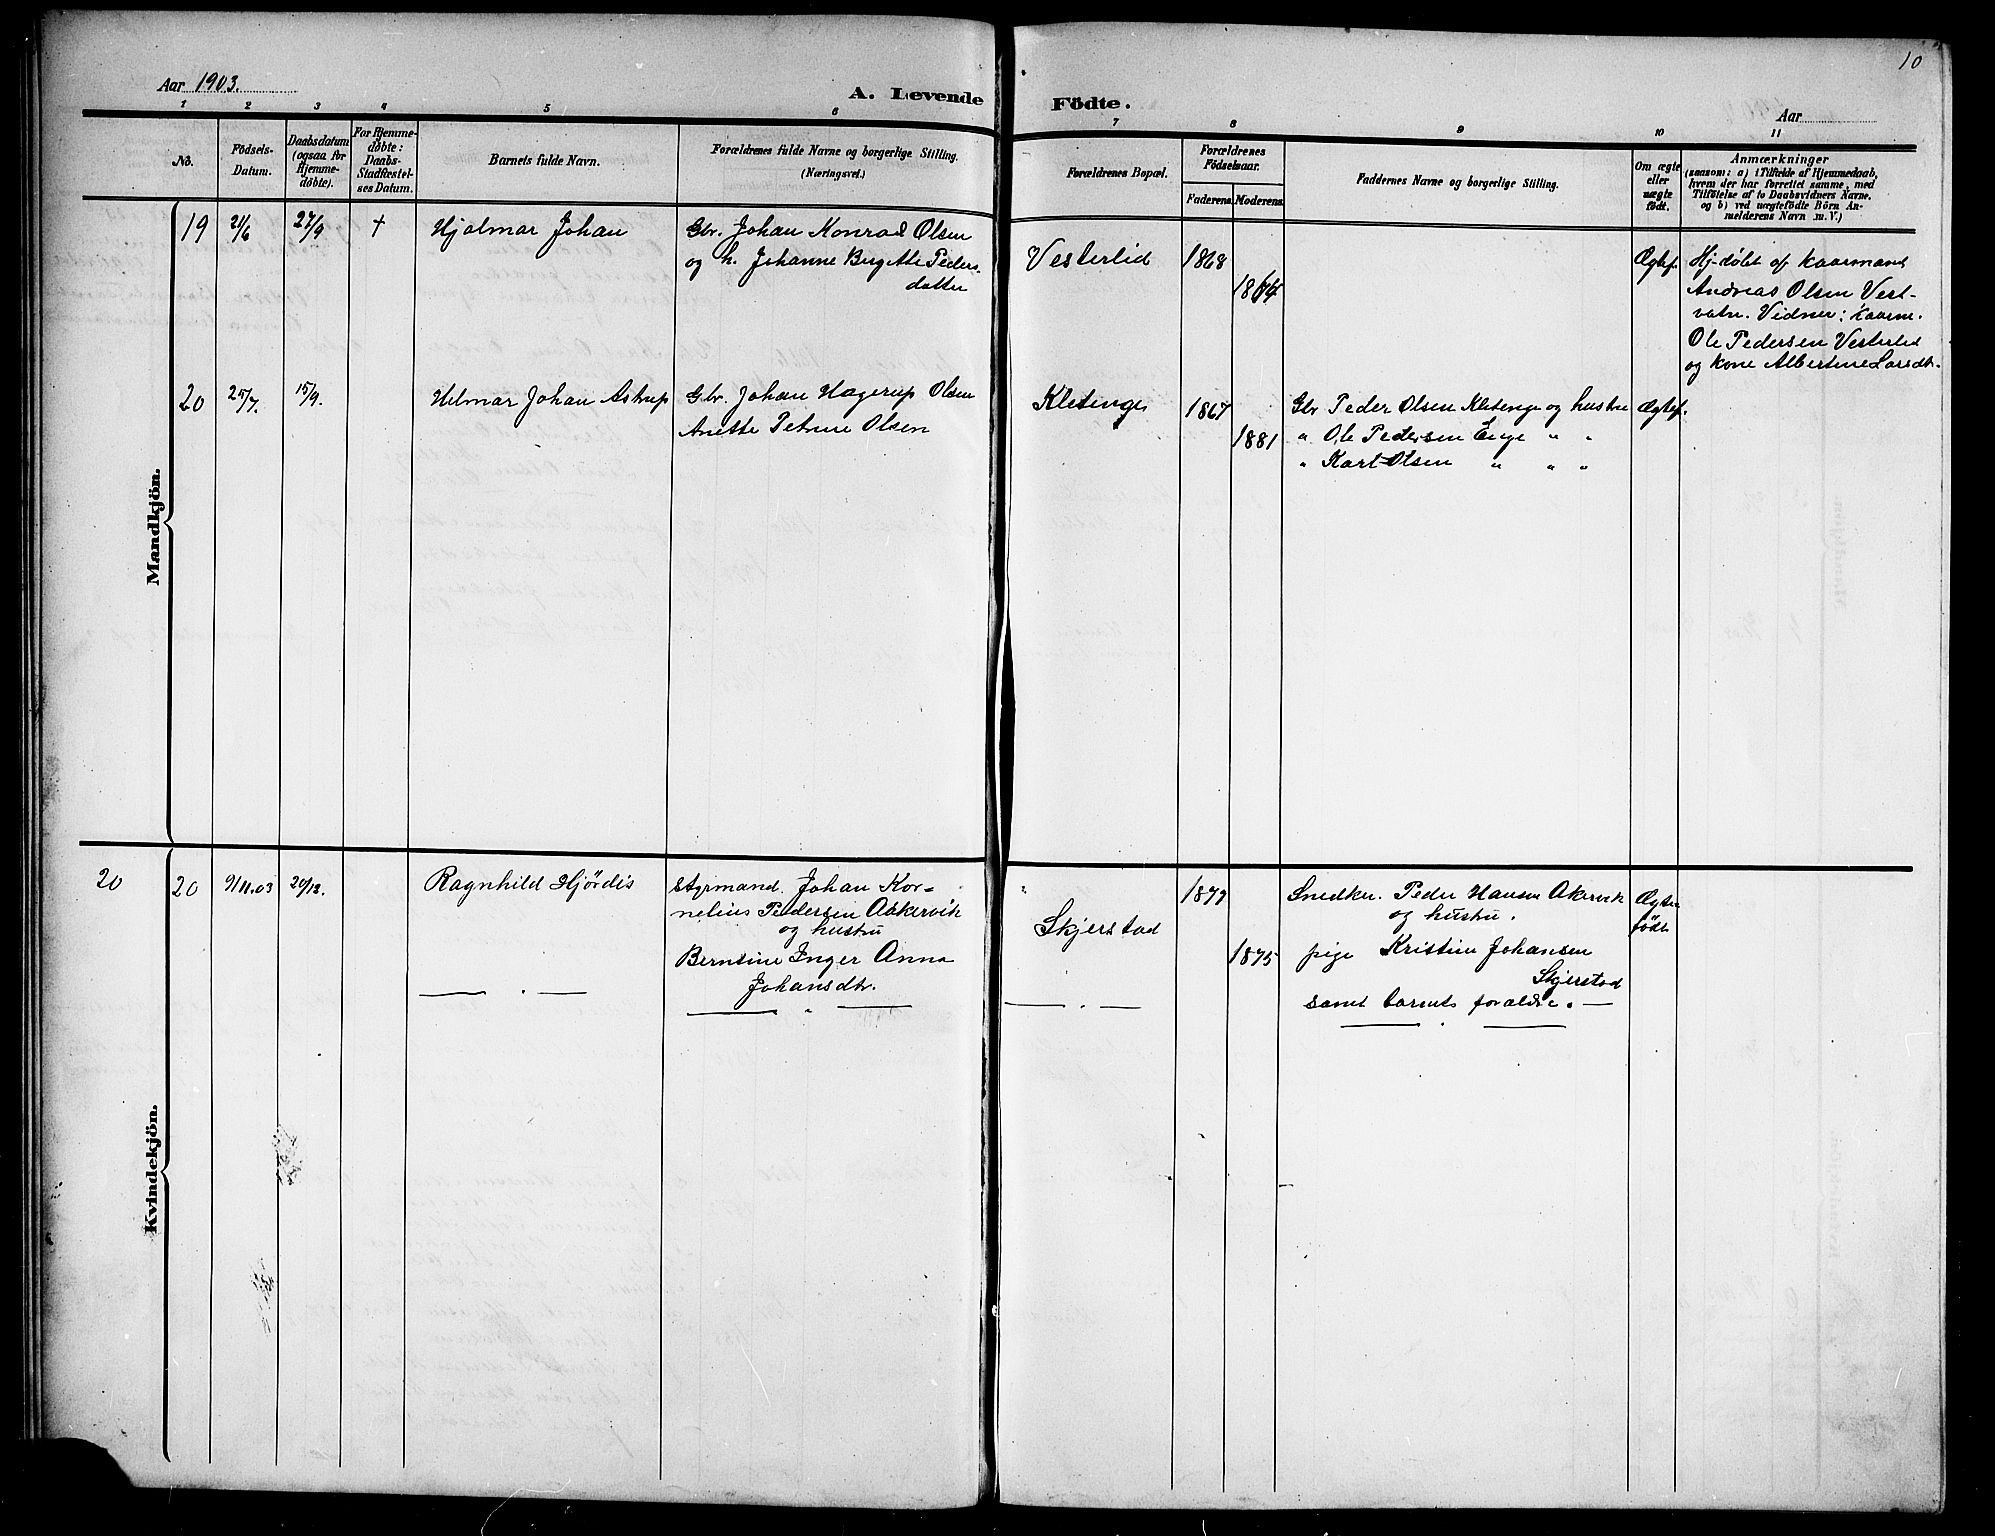 10
Aar 1903.
A. Levende Födte.
Aar
1 2 3 4 5 6 7 8 9 10 11
No.
Födsels-Datum.
Daabsdatum (ogsaa for Hjemme-döbte).
For Hjemme-döbte: Daabs-Stadfæstel-ses Datum.
Barnets fulde Navn.
Forældrenes fulde Navne og borgerlige Stilling.
(Næringsvei.)
Forældrenes Bopæl.
Forældrenes Födselsaar.
Faderens.
Moderens.
Faddernes Navne og borgerlige Stilling.
Om ægte eller uægte födt.
Anmærkninger
(saasom: a) i Tilfælde af Hjemmedaab,
hvem der har forrettet samme, med
Tilföielse af to Daabsvidners Navne.
og b) ved uægtefödte Börn An-
melderens Navn m. V.)
Mandkjön.
19 21/6 27/9 + Hjalmar Johan
Gbr. Johan Konrad Olsen
og h. Johanne Birgitte Peders-
datter
Vesterlid 1868
Ægtef.
Hj-døbt af kaarmand
Andreas Olsen Vest-
vatn. Vidner: kaarm.
Ole Pedersen Vesterlid
og kone Albertine Larsdt.
20 25/7. 15/9. Hilmar Johan Astrup
Gbr. Johan Hagerup Olsen
Anette Petrine Olsen
Kletenge 1867
1881
Gbr Peder Olsen Kletenge og hustru
" Ole Pedersen Enge " "
" Karl Olsen " " "
Ægtef.
Kvindekjön.
20 20 9/11.03 20/12. Ragnhild Hjørdis
Styrmand Johan Kor-
nelius Pedersen Aakervik
og hustru
Berntine Inger Anna
Johansdtr.
Skjerstad 1877
1875
Snedker Peder Hansen Akervik
og hustru.
pige Kristine Johansen
Skjerstad
samt barnets forældre.
Ægte
født